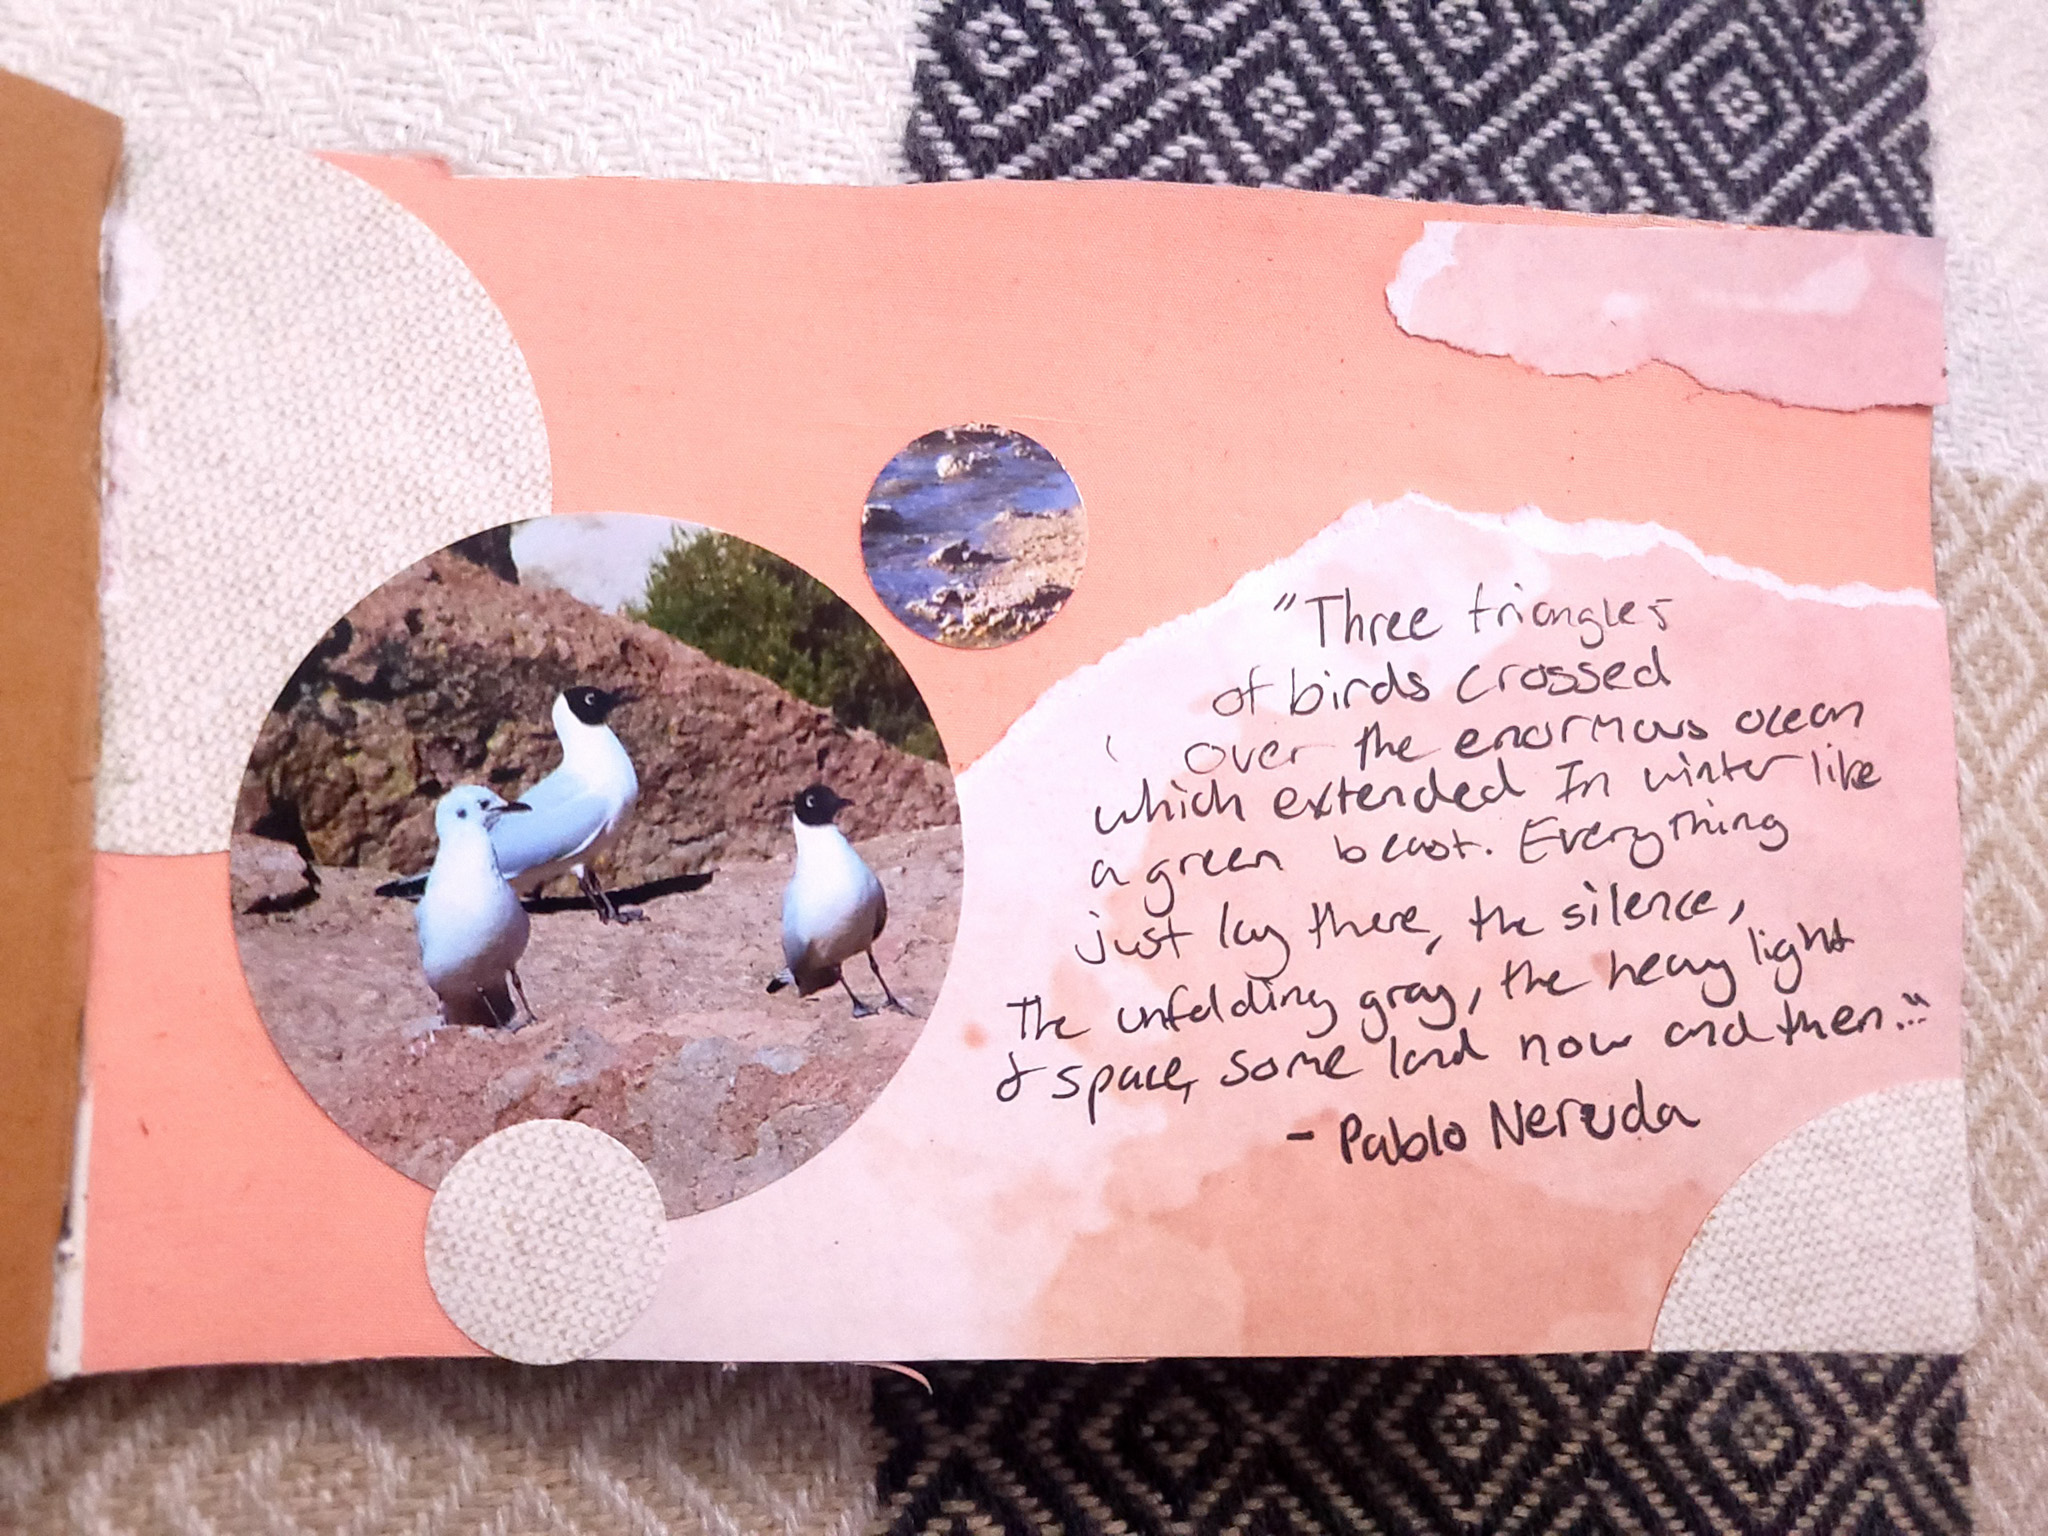 "Three triangles
of birds crossed
over the enormous ocean
which extended In winter like
a green beast. Everything
just lay there, the silence,
The unfolding gray, the heavy light
of space, some land now and then..."
- Pablo Neruda